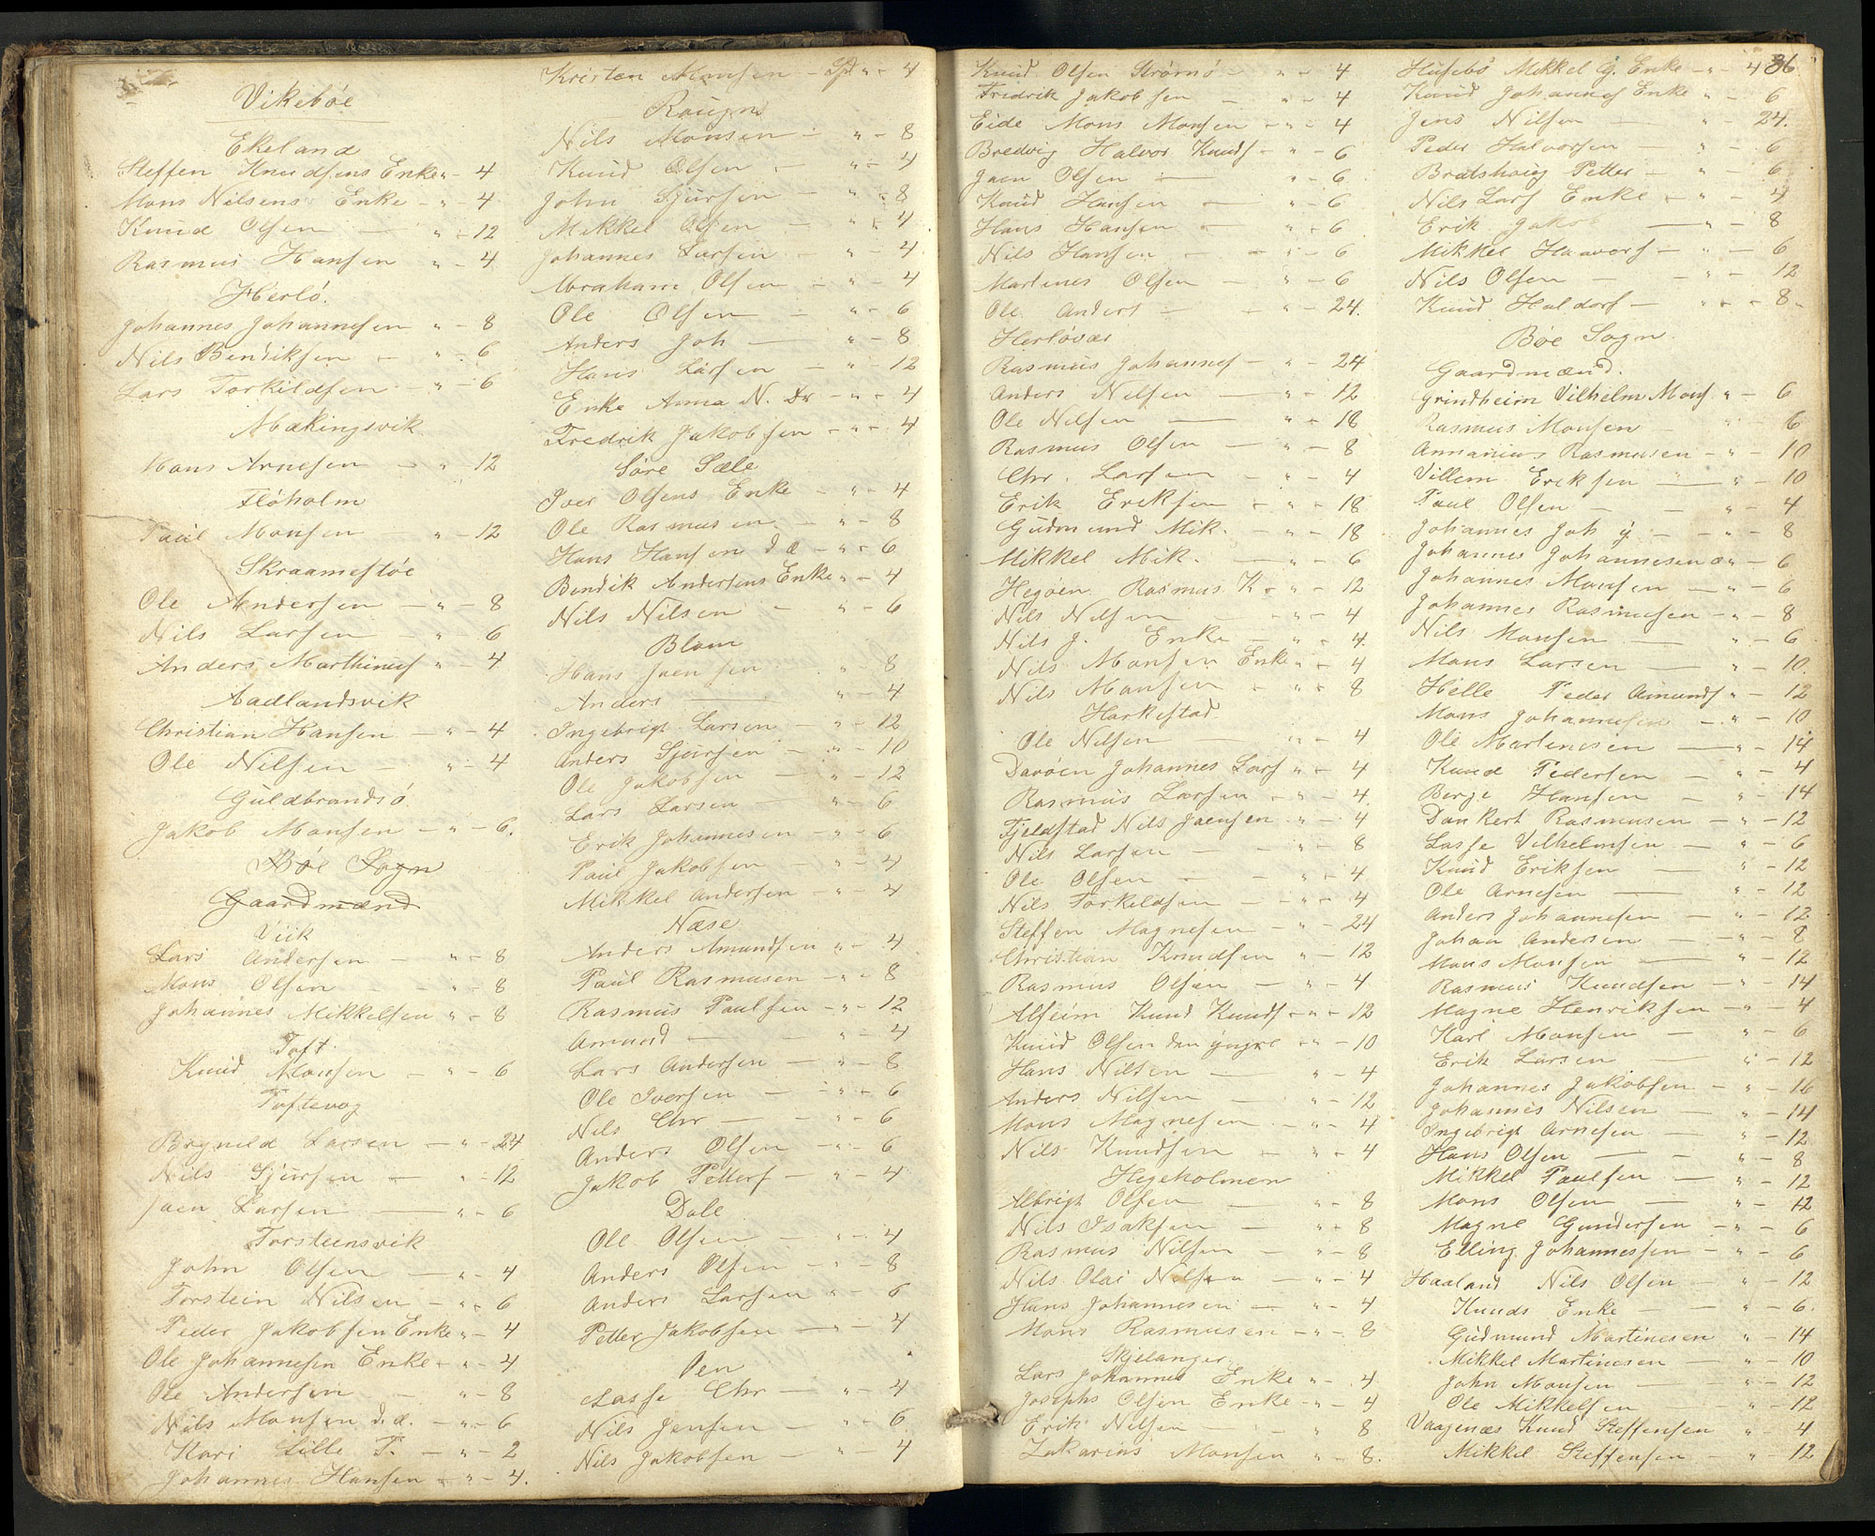 Vikebøe
Ekeland
Steffen Knudsens Enke " - 4
Mons Nilsens Enke - " - 4
Knud Olsen - " - 12
Rasmus Hansen " - 4
Herlø.
Johannes Johannesen " - 8
Nils Bendiksen - " - 6
Lars Torkildsen - " - 6
Mækingsvik
Hans Arnesen - " - 12
Floholm
Paul Monsen - " - 12
Skraamestøe
Ole Andersen - " - 8
Nils Larsen - " - 6
Anders Marthinus " - 4
Aadlandsvik
Christian Hansen - " - 4
Ole Nilsen - " - 4
Guldbrandsø
Jakob Monsen - " - 6.
Bøe Sogn
Gaardmænd
Viik
Lars Andersen - " - 8
Mons Olsen - " - 8
Johannes Mikkelsen " - 8
Toft
Knud Monsen - " - 6
Toftevog
Brynild Larsen - " - 24
Nils Sjursen - " - 12
Jaen Larsen - " - 6
Torsteinsvik
John Olsen - " - 4
Torstein Nilsen - " - 6
Peder Jakobsen Enke " - 4
Ole Johannesen Enke - " - 4
Ole Andersen - " - 8
Nils Monsen d.æ. - " - 6
Kari Lille T. - " - 2
Johannes Hansen - " - 4.
Kristen Monsen - Spd " - 4
Nils Monsen - " - 8
Knud Olsen - " - 4
John Sjursen - " - 8
Mikkel Olsen - " - 4
Johannes Larsen - " - 4
Abraham Olsen - " - 4
Ole Olsen - " - 6
Anders Joh - " - 8
Hans Larsen - " - 12
Enke Anna N. Dr - " - 4
Fredrik Jakobsen - " - 4
Søre Sæle
Iver Olsens Enke - " - 4
Ole Rasmusen - " - 8
Hans Hansen d æ - " - 6
Bendik Andersens Enke " - 4
Nils Nilsen - " - 6
Blom
Hans Jaensen " 8
Anders - " - 4
Ingebrigt Larsen - " - 12
Anders Sjursen - " - 10
Ole Jakobsen - " - 12
Lars Larsen - " - 6
Erik Johannesen - " - 6
Paul Jakobsen - " - 4
Mikkel Andersen - " - 4
Næse
Anders Amundsen " - 4
Paul Rasmusen - " - 8
Rasmus Paulsen - " - 12
Amund - " - 4
Lars Andersen - " - 8
Ole Iversen - " - 6
Nils Chr - " - 6
Anders Olsen - " - 6
Jakob Petters - " - 4
Dale
Ole Olsen - " - 4
Anders Olsen - " - 8
Anders Larsen " - 6
Petter Jakobsen - " - 4
Oen
Lasse Chr - " - 4
Nils Jensen - " - 6
Nils Jakobsen - " - 4
36
Knud Olsen Strømø - " - 4
Fredrik Jakobsen - " - 4
Eide Mons Monsen - " - 4
Bredvig Halvor Knuds - " - 6
Jaen Olsen - " - 6
Knud Hansen - " - 6
Hans Hansen - " - 6
Nils Hansen - " - 6
Martines Olsen - " - 6
Ole Anders - " - 24.
Herløvær
Rasmus Johannes - " - 24
Anders Nilsen - " - 12
Ole Nilsen - " - 18
Rasmus Olsen - " - 8
Chr. Larsen - " - 4
Erik Eriksen - " - 18
Gudmund Mik. - " - 18
Mikkel Mik. - " - 6
Hegøen Rasmus K - " - 12
Nils Nilsen - " - 4
Nils J. Enke - " - 4
Nils Monsen Enke " - 4
Nils Monsen - " - 8
Harkestad
Ole Nilsen - " - 4
Davøen Johannes Lars " - 4
Rasmus Larsen - " - 4.
Fjeldstad Nils Jaensen - " - 4
Nils Larsen - " - 8
Ole Olsen - " - 4
Nils Torkeldsen - " - 4
Steffen Magnesen - " - 24
Christian Knudsen " - 12
Rasmus Olsen - " - 4
Alfeim Knud Knuds - " - 12
Knud Olsen den yngre " - 10
Hans Nilsen - " - 4
Anders Nilsen - " - 12
Mons Magnesen - " - 4
Nils Knudsen - " - 4
Hegeholmen
Albrigt Olsen " - 8
Nils Isaksen " - 8
Rasmus Nilsen - " - 8
Nils Olai Nilsen - " - 4
Hans Johannesen - " - 4
Mons Rasmusen - " - 8
Skjelanger
Lars Johannes Enke " - 4
Josephs Olsen Enke - " - 4
Erik Nilsen " 8
Zakarias Monsen " - 8.
Husebø Mikkel G. Enke - " - 4
Knud Johannes Enke " - 6
Jens Nilsen " - 24.
Peder Halvorsen " - 6
Bratshaug Petter - " - 6
Nils Lars Enke - " - 4
Erik Jakob - " - 8
Mikkel Haavors - " - 6
Nils Olsen - " - 12
Knud Haldors - " - 8
Bøe Sogn.
Gaardmænd.
Grindheim Vilhelm Mons " - 6
Rasmus Monsen - " 6
Annanias Rasmusen - " - 10
Villem Eriksen - " - 10
Paul Olsen - " - 4
Johannes Joh y - " - 8
Johannes Johannesen æ " - 6
Johannes Monsen - " - 6
Johannes Rasmusen - " - 8
Nils Monsen - " - 6
Mons Larsen - " - 10
Helle Peder Amunds " - 12
Mons Johannesen - " - 10
Ole Martinesen - " - 14
Knud Pedersen - " - 4
Berge Hansen - " - 14
Dankert Rasmusen - " - 12
Lasse Vilhelmsen - " - 6
Knud Eriksen - " - 12
Ole Arnesen - " - 12
Anders Johannesen - " - 12
Johan Andersen - " - 8
Mons Monsen - " - 12
Rasmus Knudsen - " - 14
Magne Henriksen - " - 4
Karl Monsen - " - 6
Erik Larsen - " - 12
Johannes Jakobsen - " - 16
Johannes Nilsen - " - 14
Ingebrigt Arnesen - " - 12
Hans Olsen - " - 8
Mikkel Paulsen - " - 12
Mons Olsen - " - 12
Magne Gundersen - " - 6
Elling Johannessen - " - 6
Haaland Nils Olsen - " - 12
Knuds Enke - " - 6.
Gudmund Martinesen " - 14
Mikkel Martinesen - " - 10
John Monsen - " - 12
Ole Mikkelsen " - 12
Vaagenæs Knud Steffensen " - 4
Mikkel Steffensen - " - 12